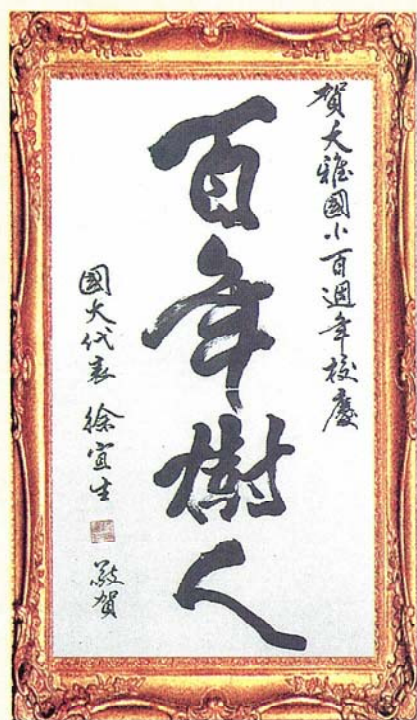 賀大雅國小百週年校慶
百年樹人
國大代表 徐宜生 敬賀